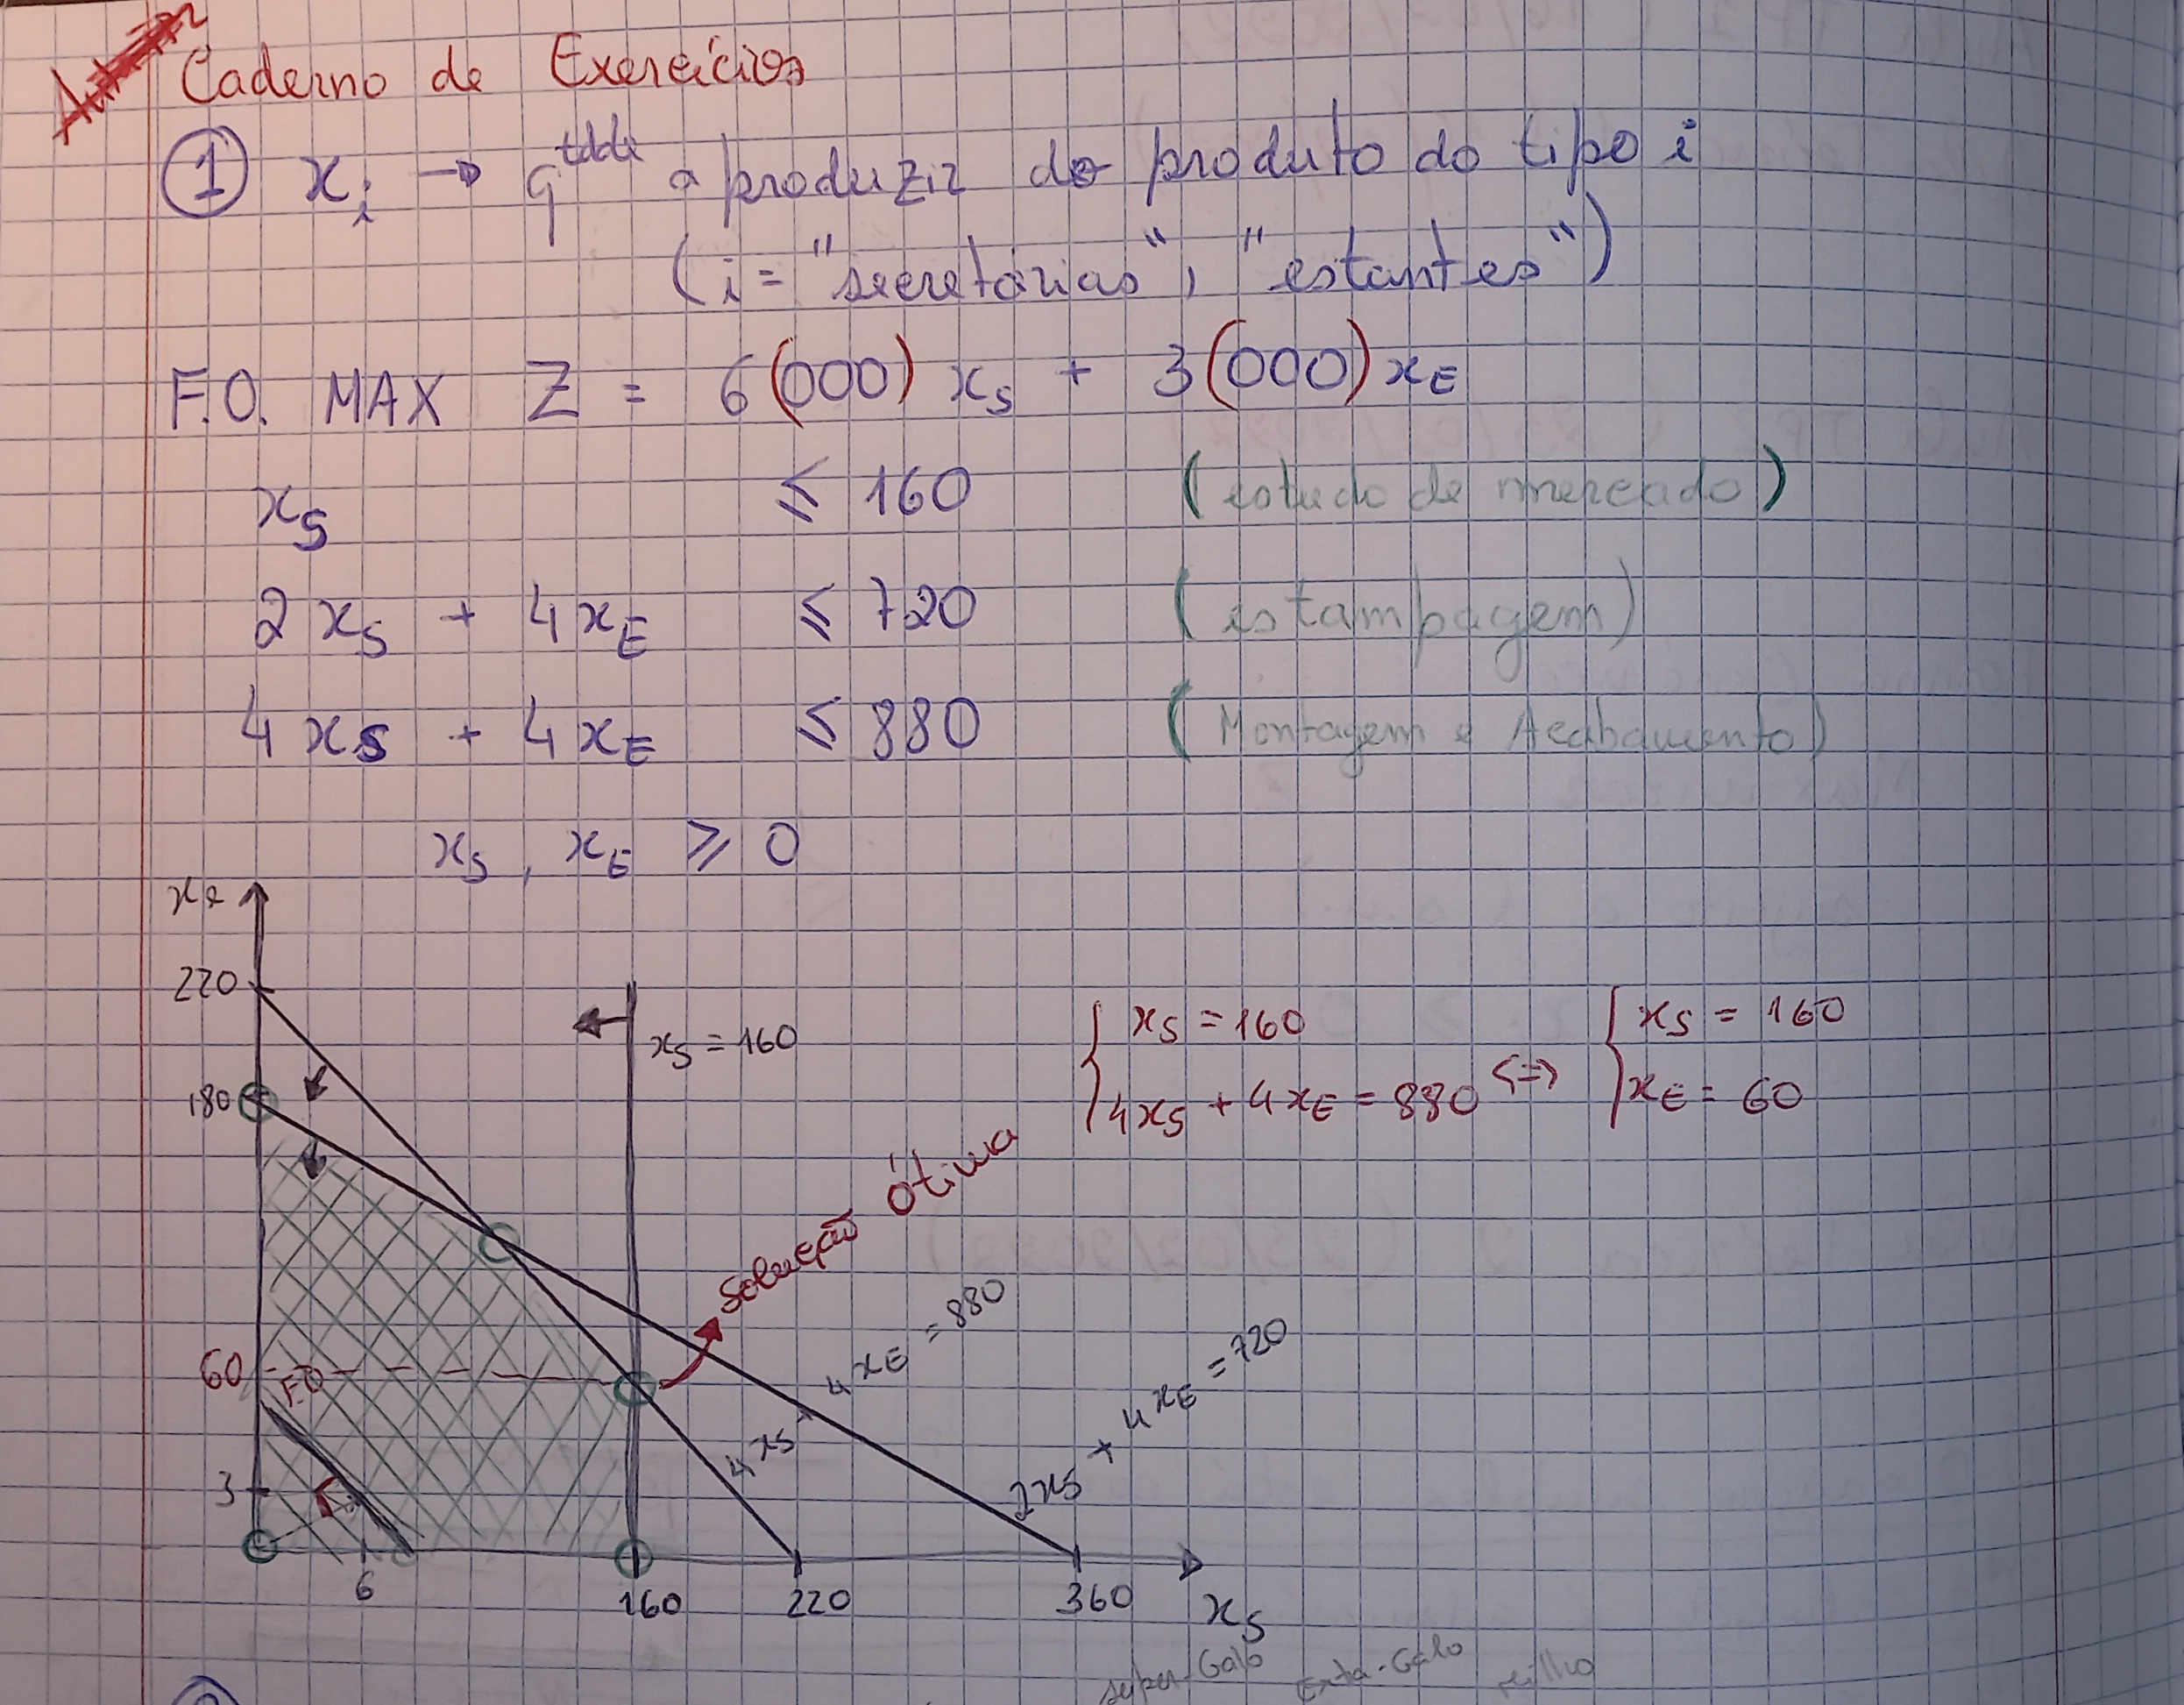 Caderno de Exercícios
① xᵢ → qtdde a produzir do produto do tipo i
(i = "secretárias", "estantes")
F.O. MAX Z = 6(000) xS + 3(000) xE
xS ≤ 160 (estudo de mercado)
2xS + 4xE ≤ 720 (estampagem)
4xS + 4xE ≤ 880 (Montagem e Acabamento)
xS, xE ≥ 0
xE
220
xS = 160
{ xS = 160
4xS + 4xE = 880 <=> { xS = 160
xE = 60
180
Solução ótima
4xS + 4xE = 880
2xS + 4xE = 720
60
FO
3
6
160
220
360
xS
super-Galo Extra-Galo milho